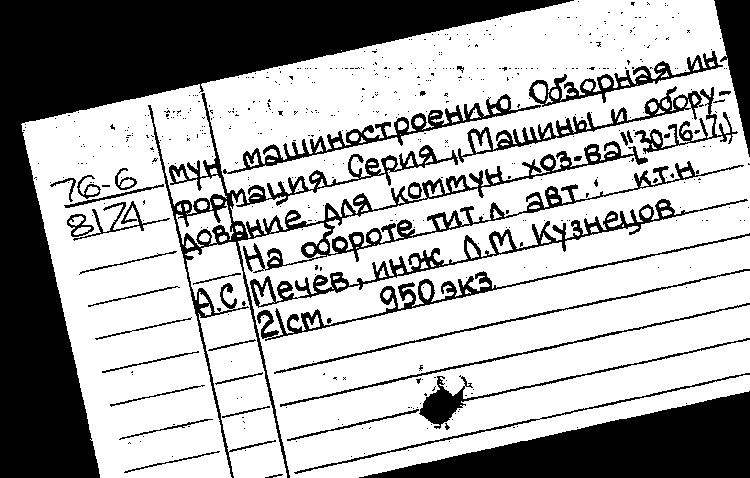 76-6
8174
мун. машиностроению. Обзорная ин-
формация. Серия „Машины и обору-
дование для коммун. хоз-ва" [30-76-17])
На обороте тит.л. авт.: к.т.н.
А.С. Мечёв, инж. Л.М. Кузнецов.
21см. 950 экз.